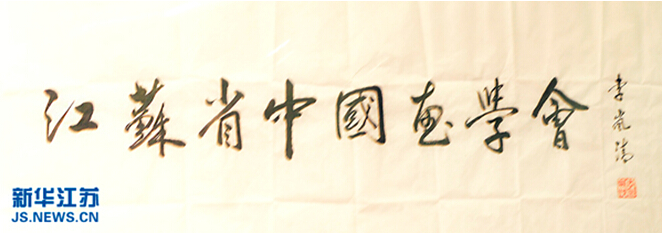 江蘇省中國画學會
李嵐清
新华江苏
JS.NEWS.CN